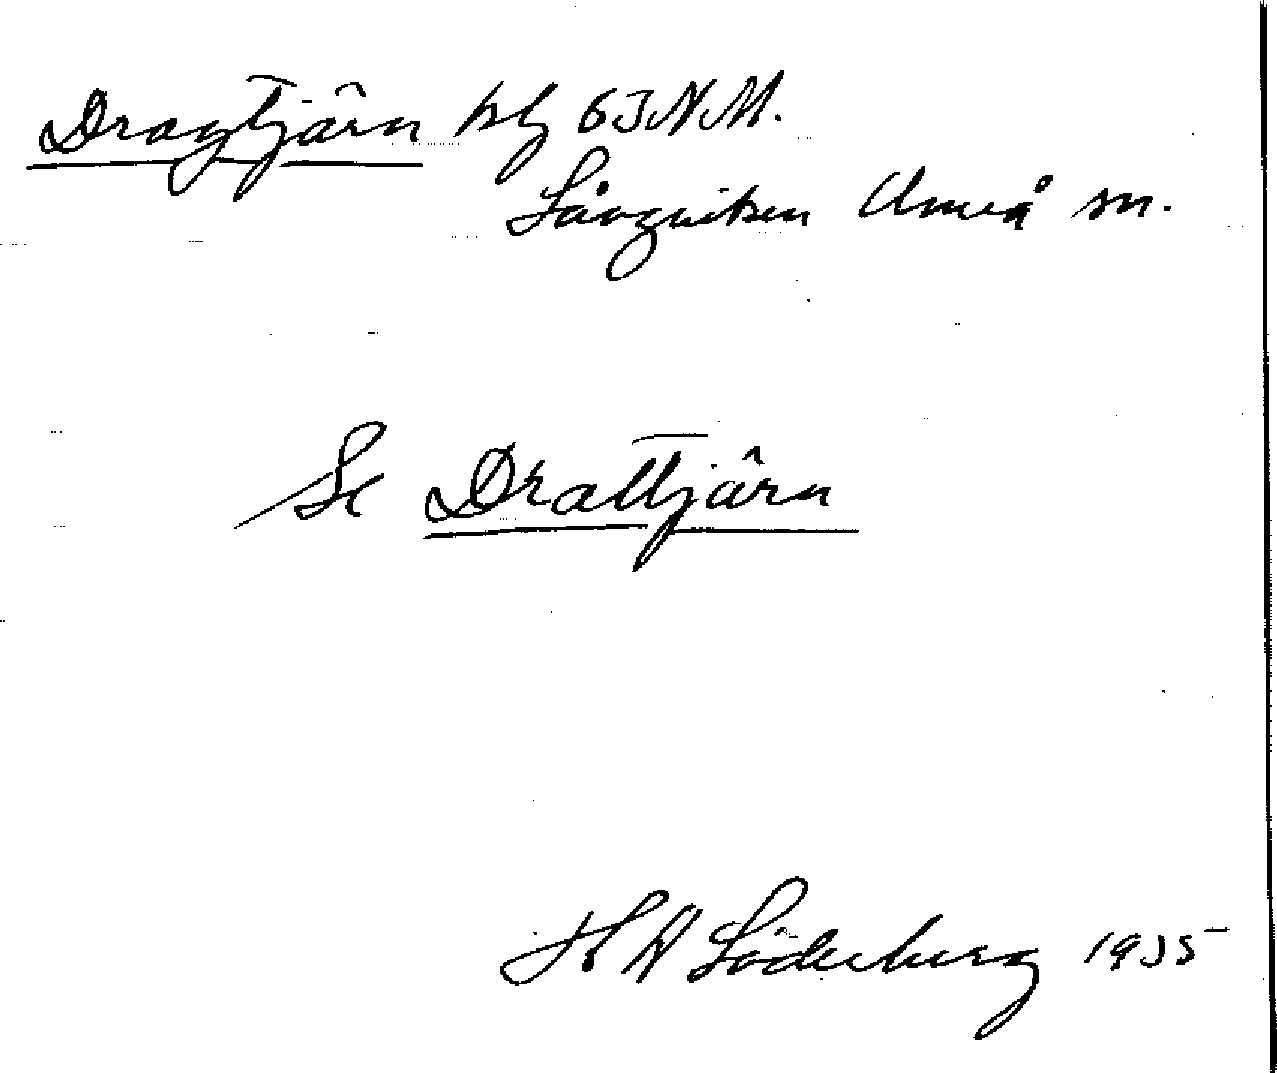 Dragtjärn blg 63NM.
Sörmjölen Umeå sn.
Se Drattjärn
H W Söderberg 1935